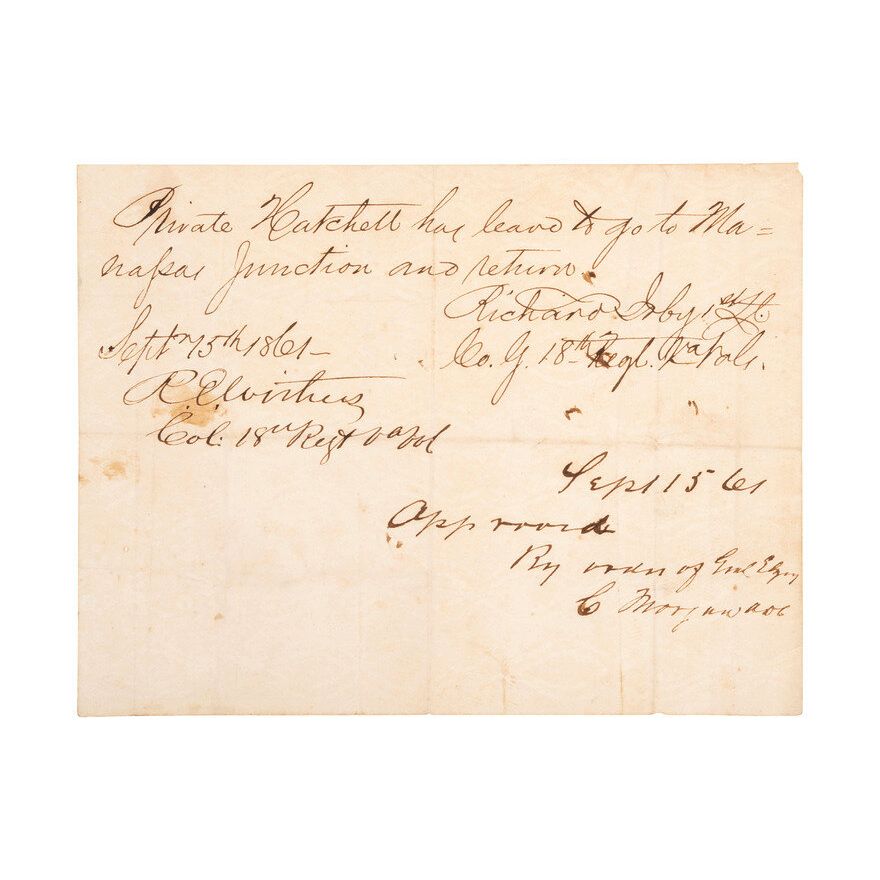 Private Hatchett has leave to go to Ma=
nassas Junction and return.
Richard Irby 1st Lt.
Co. G. 18th Regt. Va Vols.
Septr 15th 1861–
R E Withers
Col: 18th Regt Va Vol
" "
Sept 15 61
Approved
By order of Genl Elzey
C Morgan ADC